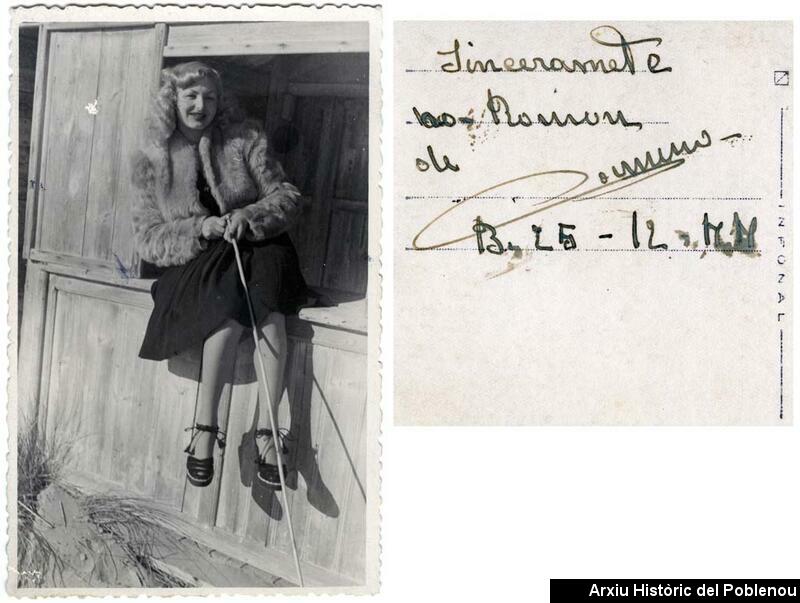 Sinceramete
Ramon
de Carmen
B. 25 - 12 -
INFONAL
Arxiu Històric del Poblenou